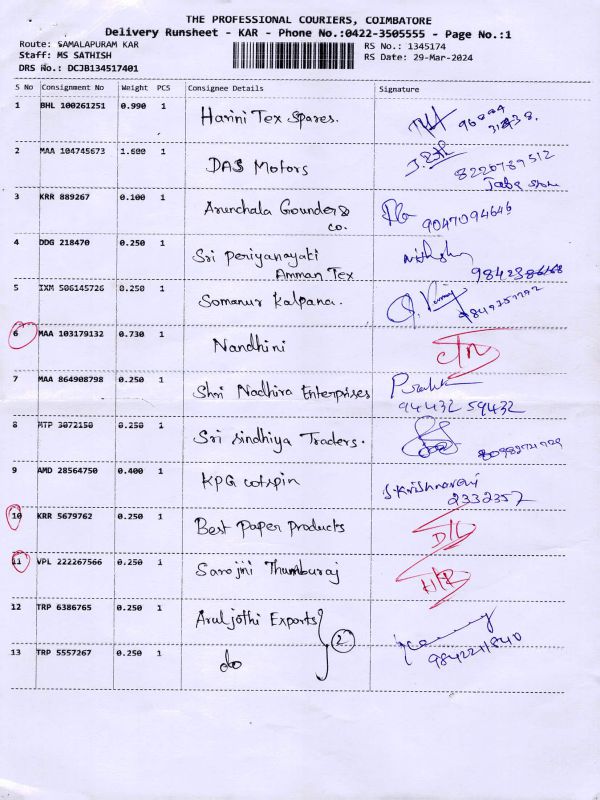 THE PROFESSIONAL COURIERS, COIMBATORE
Delivery Runsheet - KAR - Phone No.:0422-3505555 - Page No.:1
Route: SAMALAPURAM KAR
RS No.: 1345174
Staff: MS SATHISH
RS Date: 29-Mar-2024
DRS No.: DCJB134517401
S No Consignment No Weight PCS Consignee Details Signature
1 BHL 100261251 0.990 1 Harini Tex Spares.
2 MAA 104745673 1.600 1 DAS Motors
8220789512
3 KRR 889267 0.100 1 Arunchala Gounder &
co. 9047094646
4 DDG 218470 0.250 1 Sri periyanayaki
Amman Tex
5 IXM 506145726 0.250 1 Somanur Kalpana.
6 MAA 103179132 0.730 1 Nandhini
7 MAA 864908798 0.250 1 Shri Nadhira Enterprises
94432 59432
8 MTP 3072150 0.250 1 Sri Sindhiya Traders.
9 AMD 28564750 0.400 1 KPG cotspin S.Krishnaveni
2332357
10 KRR 5679762 0.250 1 Best Paper Products D/L
11 VPL 222267566 0.250 1 Sarojini Thumburaj
12 TRP 6386765 0.250 1 Aruljothi Exports
2
13 TRP 5557267 0.250 1 do